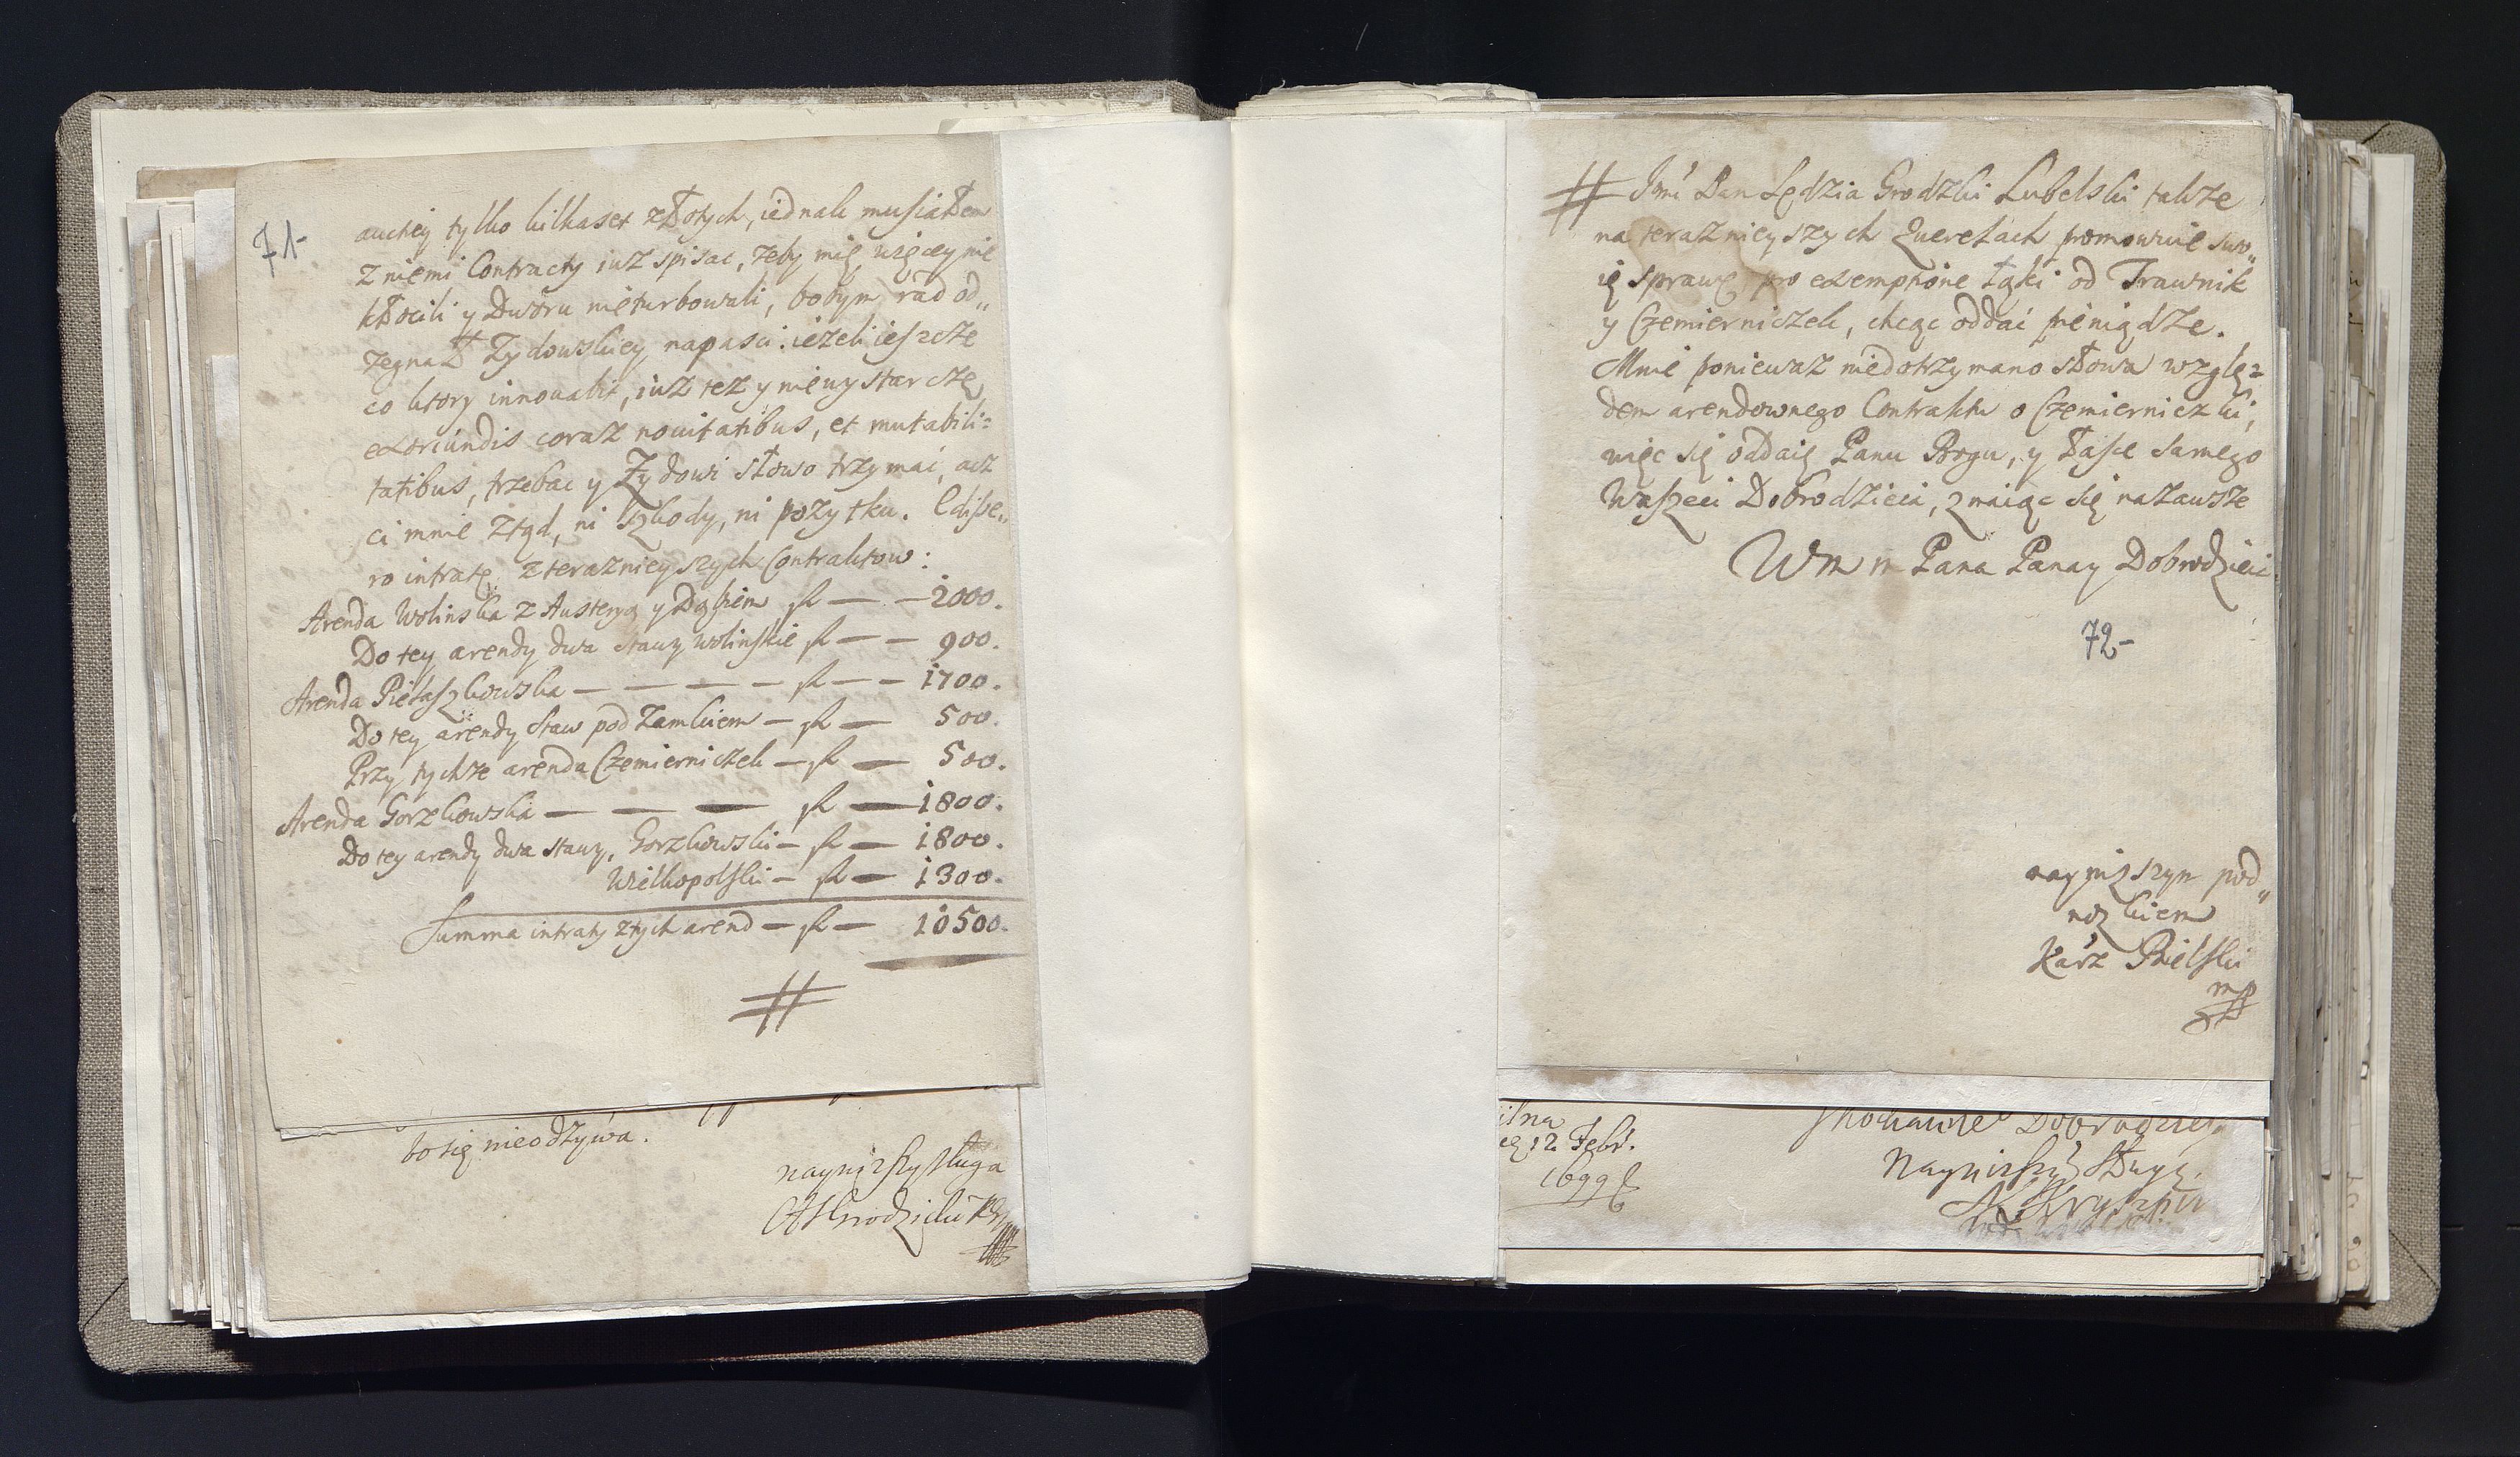 71-
auctiey tylko kilkaset złotych, iednak musiałem
z niemi Contracty iusz spisac, zeby mię więcey nie
kłocili y Dworu nie turbowali, bobym rad od„
zegnał Zydowskiey napasci: iezeli ieszcze
co ktory innouabit, iusz tez y nie wystarczę
exoriundis coraz nouitatibus, et mutabili=
tatibus, trzebac y Zydowi słowo trzymać, acz
ci mnie ztąd, ni szkody, ni pozytku. Edisse„
ro intratę z teraznieyszych Contraktow:
Arenda Wolinska z Austeryą y Dąbiem fl — — 2000.
Do tey arendy dwa stawy wolinskie fl — — 900.
Arenda Pietaszkowska — — — — fl — — 1700.
Do tey arendy staw pod Zamkiem — fl — 500.
Przy tychze arenda Czemierniczek — fl — 500.
Arenda Gorzkowska — — — fl — 1800.
Do tey arendy dwa stawy, Gorzkowski — fl — 1800.
Wielkopolski — fl — 1300.
Summa intraty z tych arend — fl — 10500.
#
bo się nieodzywa.
nayniższy sługa
# Jmć Pan Sędzia Grodzki Lubelski takze
na teraznieyszych Querelach promowuie swo„
ię sprawę pro exemptione łąki od Trawnik
y Czemierniczek, chcąc oddać pieniądze.
Mnie poniewaz niedotrzymano słowa wzglę=
dem arendownego Contraktu o Czemierniczki,
więc się oddaię Panu Bogu, y łasce samego
Waszeci Dobrodzieia, znaiąc się nazawsze
Wm m Pana Panay Dobrodzieia
72-
nayniszym pod„
nozkiem
Karz Bielski
mp
ilna
12 Febr.
1699
Dobrodzieia
Nayniższy Sługa